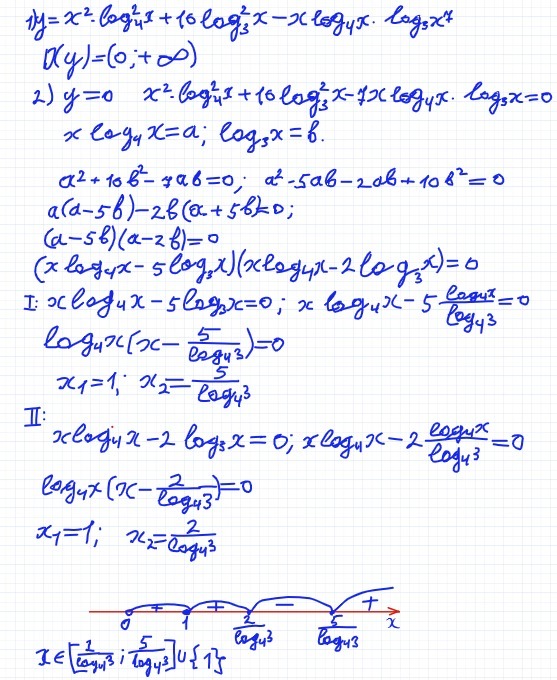 1) y = x²·log₄²x + 10 log₃²x − x log₄x · log₃x⁷
D(y) = (0; +∞)
2) y = 0 x²·log₄²x + 10 log₃²x − 7x log₄x · log₃x = 0
x log₄x = a; log₃x = b.
a² + 10b² − 7ab = 0; a² − 5ab − 2ab + 10b² = 0
a(a − 5b) − 2b(a + 5b) = 0;
(a − 5b)(a − 2b) = 0
(x log₄x − 5 log₃x)(x log₄x − 2 log₃x) = 0
I: x log₄x − 5 log₃x = 0; x log₄x − 5 log₄x/log₄3 = 0
log₄x(x − 5/log₄3) = 0
x₁ = 1; x₂ = 5/log₄3
II:
x log₄x − 2 log₃x = 0; x log₄x − 2 log₄x/log₄3 = 0
log₄x(x − 2/log₄3) = 0
x₁ = 1; x₂ = 2/log₄3
+ + − +
0 1 2/log₄3 5/log₄3 x
x ∈ [2/log₄3; 5/log₄3] ∪ {1}